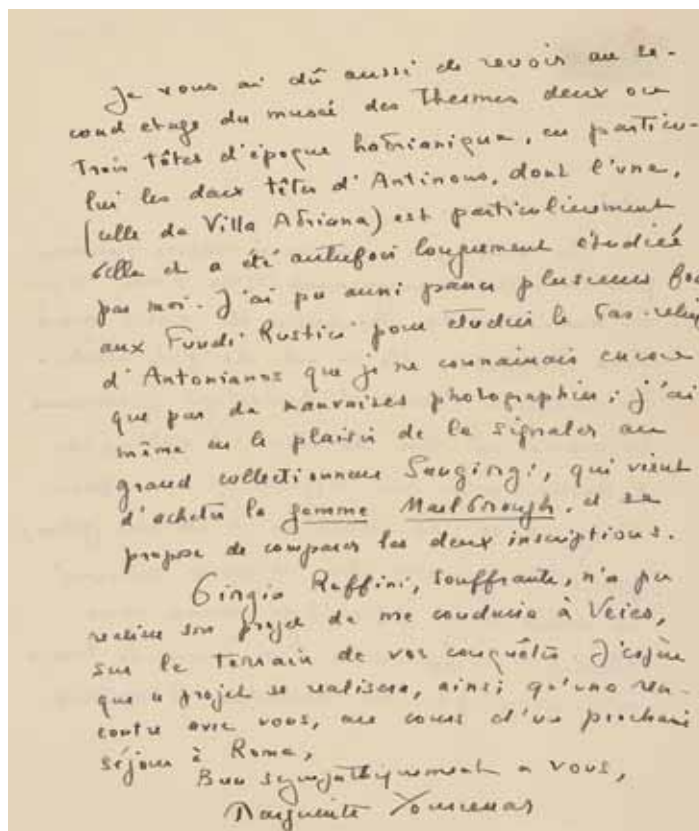 Je vous ai dû aussi de revoir au se-
cond etage du musée des Thermes deux ou
trois têtes d'époque hadrianique, en particu-
lier les deux têtes d'Antinous, dont l'une,
(celle de Villa Adriana) est particulièrement
belle et a été autrefois longuement étudiée
par moi. J'ai pu aussi passer plusieurs fois
aux Fundi Rustici pour étudier le bas-relief
d'Antonianos que je ne connaissais encore
que par de mauvaises photographies ; j'ai
même eu le plaisir de le signaler au
grand collectionneur Sangiorgi, qui vient
d'acheter la gemme Marlborough, et se
propose de comparer les deux inscriptions.
Giorgia Ruffini, souffrante, n'a pu
réaliser son projet de me conduire à Veies,
sur le terrain de vos conquêtes. J'espère
que ce projet se realisera, ainsi qu'une ren-
contre avec vous, au cours d'un prochain
séjour à Rome,
Bien sympathiquement a vous,
Marguerite Yourcenar